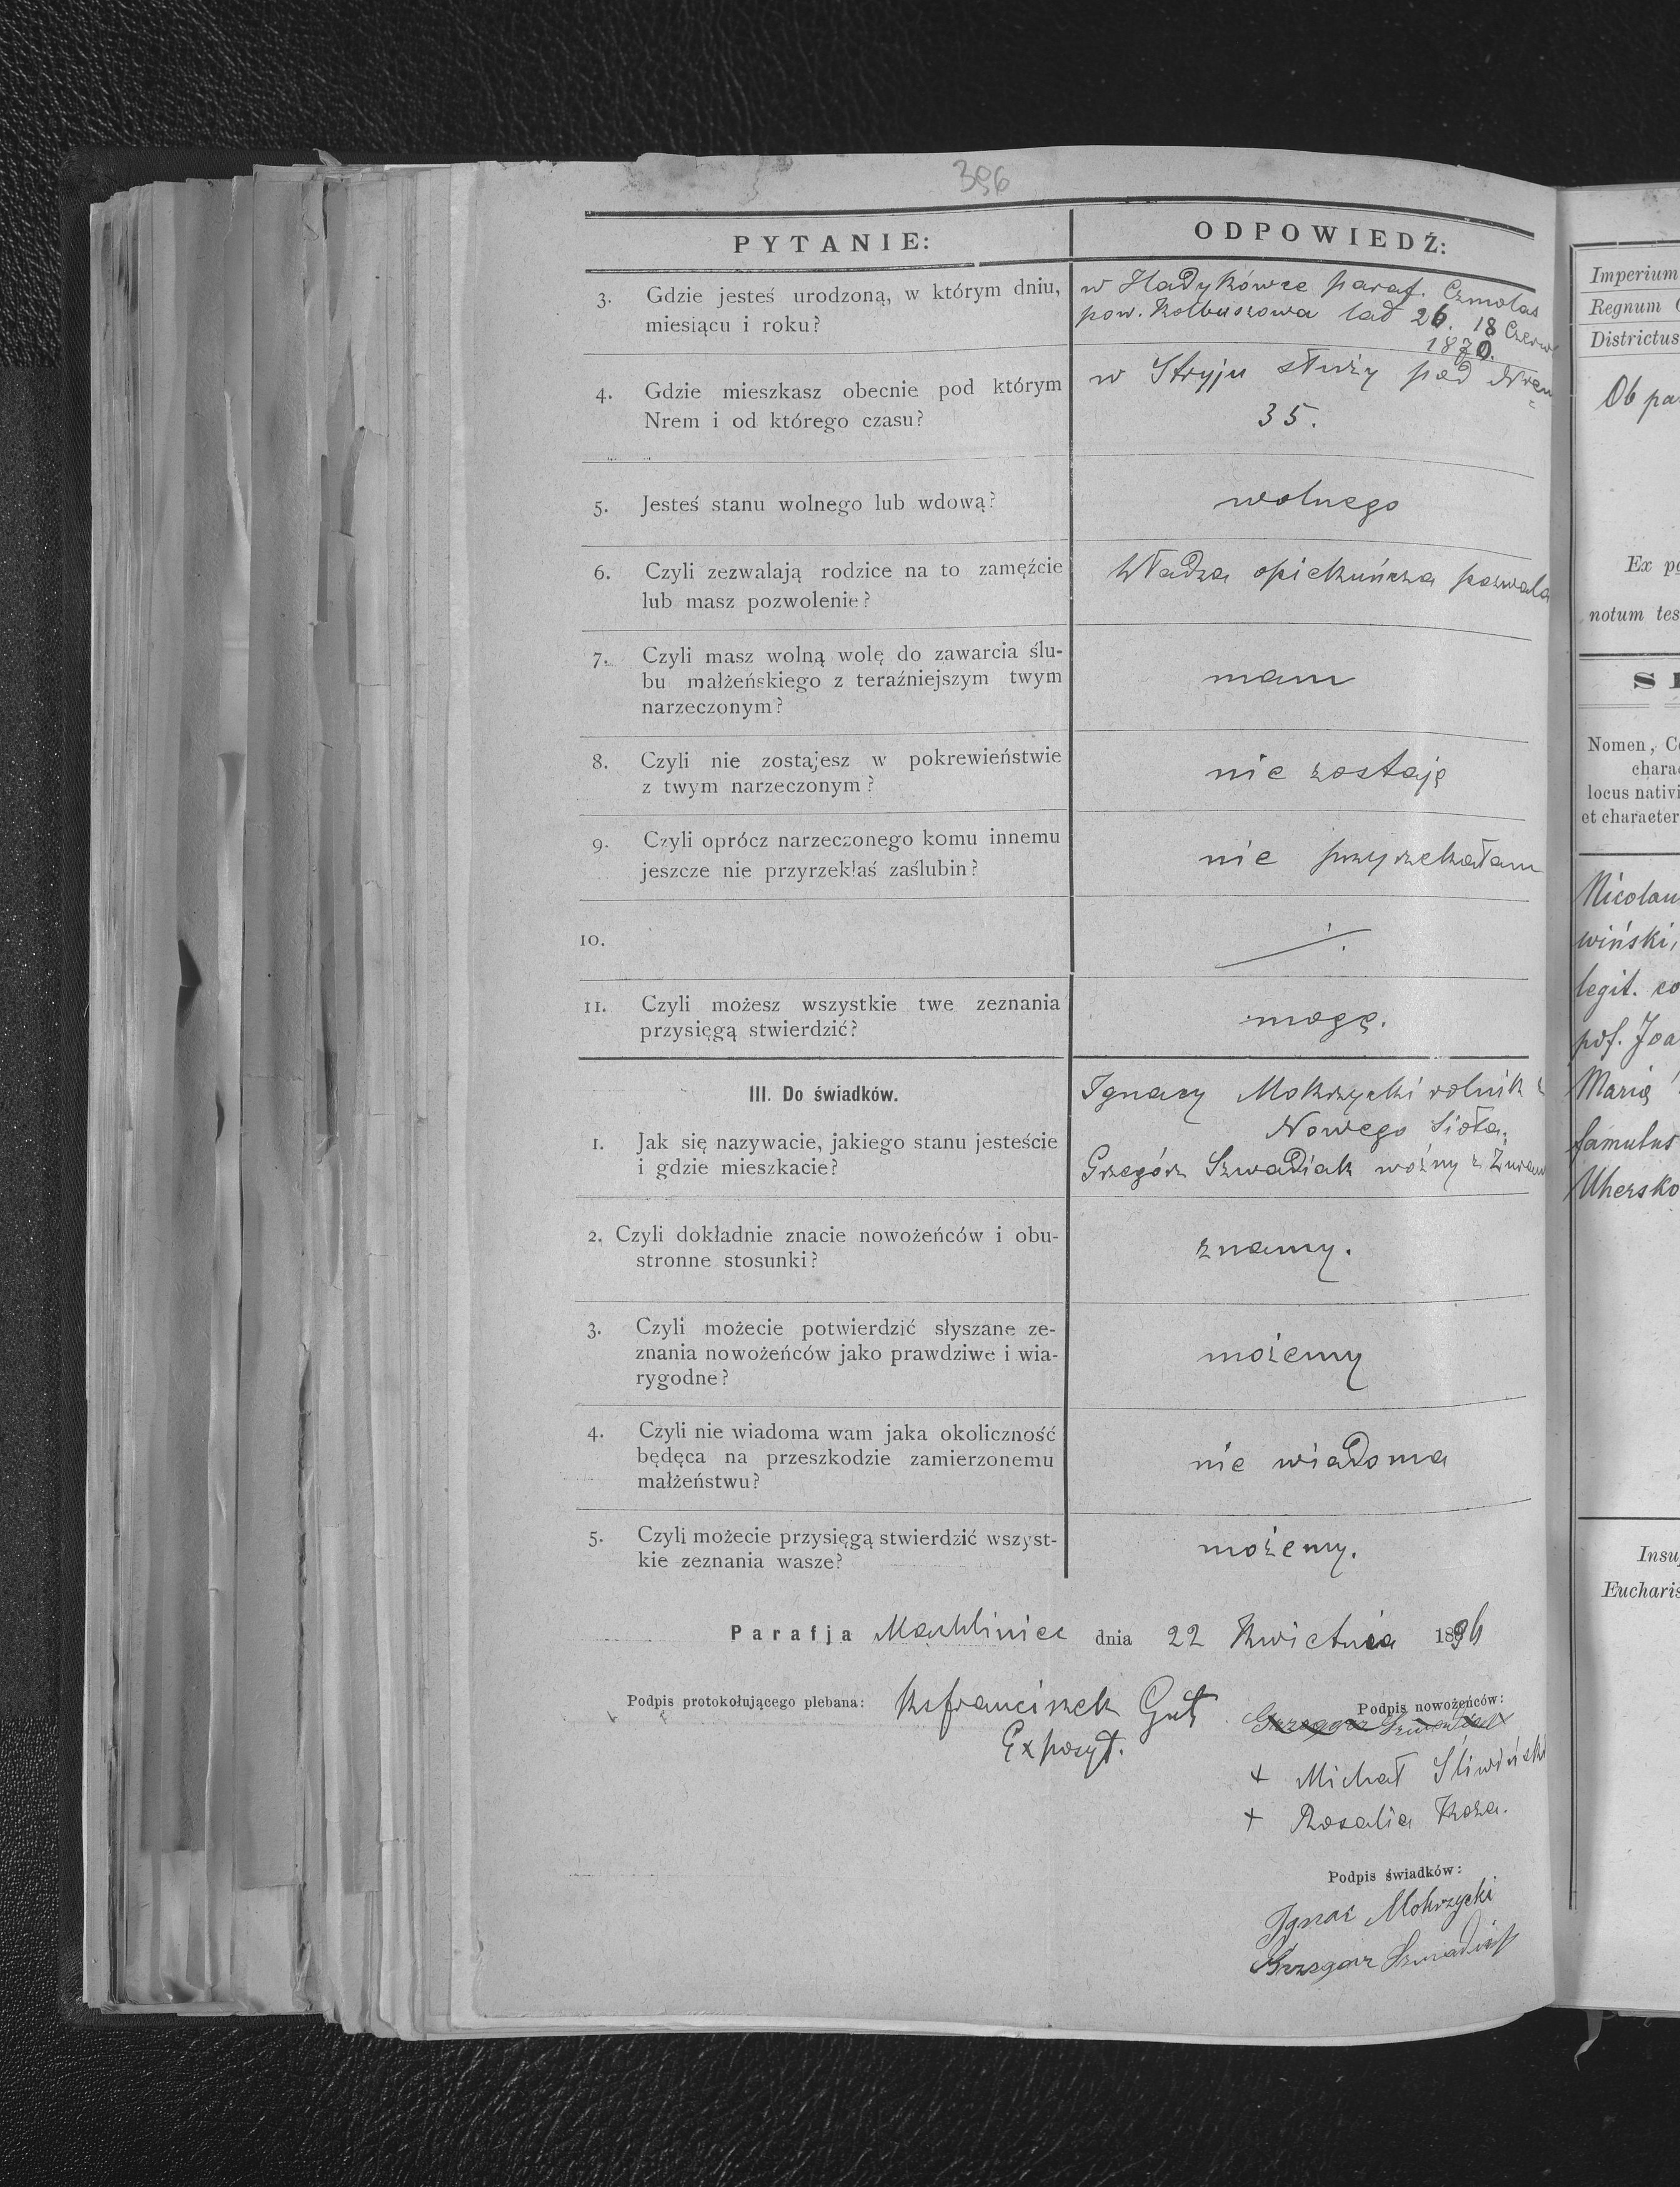 396
PYTANIE:
ODPOWIEDŹ:
3. Gdzie jesteś urodzoną, w którym dniu,
miesiącu i roku?
w Hadykówce paraf. Czmolas
pow. Kolbuszowa lad 26. 18 Czerw
1870.
4. Gdzie mieszkasz obecnie pod którym
Nrem i od którego czasu?
w Stryju służy pod Nrem
35.
5. Jesteś stanu wolnego lub wdową?
wolnego
6. Czyli zezwalają rodzice na to zamęźcie
lub masz pozwolenie?
Władza opiekuńcza pozwala
7. Czyli masz wolną wolę do zawarcia ślu-
bu małżeńskiego z teraźniejszym twym
narzeczonym?
mam
8. Czyli nie zostajesz w pokrewieństwie
z twym narzeczonym?
nie zostaję
9. Czyli oprócz narzeczonego komu innemu
jeszcze nie przyrzekłaś zaślubin?
nie przyrzekałam
10.
11. Czyli możesz wszystkie twe zeznania
przysięgą stwierdzić?
mogę.
III. Do świadków.
1. Jak się nazywacie, jakiego stanu jesteście
i gdzie mieszkacie?
Ignacy Mokrzycki rolnik z
Nowego Sioła,
Grzegórz Szwadiak woźny z
2. Czyli dokładnie znacie nowożeńców i obu-
stronne stosunki?
znamy.
3. Czyli możecie potwierdzić słyszane ze-
znania nowożeńców jako prawdziwe i wia-
rygodne?
możemy
4. Czyli nie wiadoma wam jaka okoliczność
będęca na przeszkodzie zamierzonemu
małżeństwu?
nie wiadoma
5. Czyli możecie przysięgą stwierdzić wszyst-
kie zeznania wasze?
możemy.
Parafja Machliniec dnia 22 Kwietnia 1896
Podpis protokołującego plebana: Ks Franciszek Gut
Expozyt.
Podpis nowożeńców:
+ Michał Śliwiński
+ Rozalia Koza.
Podpis świadków:
Ignac Mokrzycki
Grzegorz Szwadiak
Imperium
Regnum
Districtus
Ob pa
Ex po
notum tes
Nomen, Co
charac
locus nativi
et character
Nicolaus
wiński,
legit. co
pos. Joa
Marię
famulus
Uhersko
Insup
Eucharis